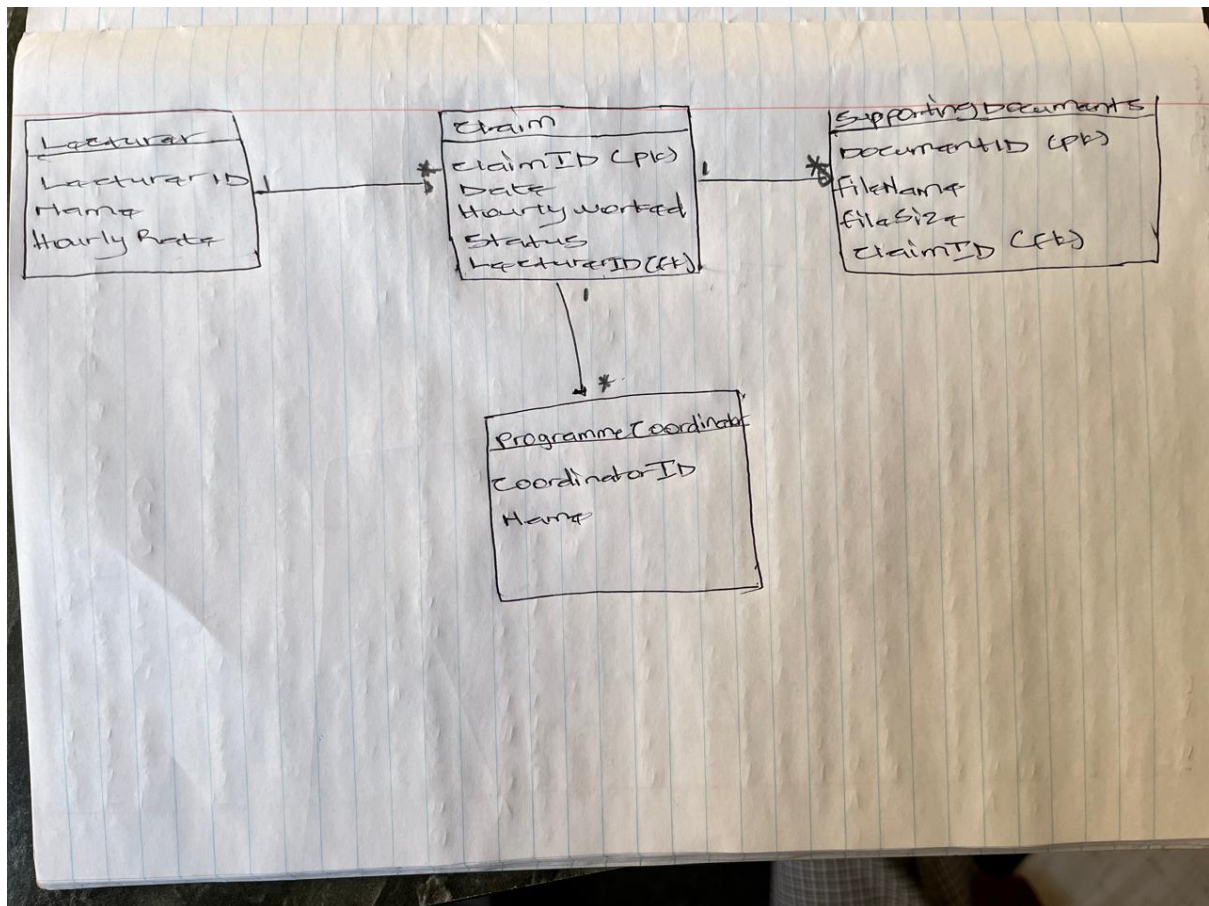 Lecturer
LecturerID
Name
Hourly Rate
1
*
Claim
ClaimID (pk)
Date
Hourly worked
Status
LecturerID (fk)
1
*
SupportingDocuments
DocumentID (pk)
fileName
fileSize
ClaimID (fk)
1
*
ProgrammeCoordinator
CoordinatorID
Name